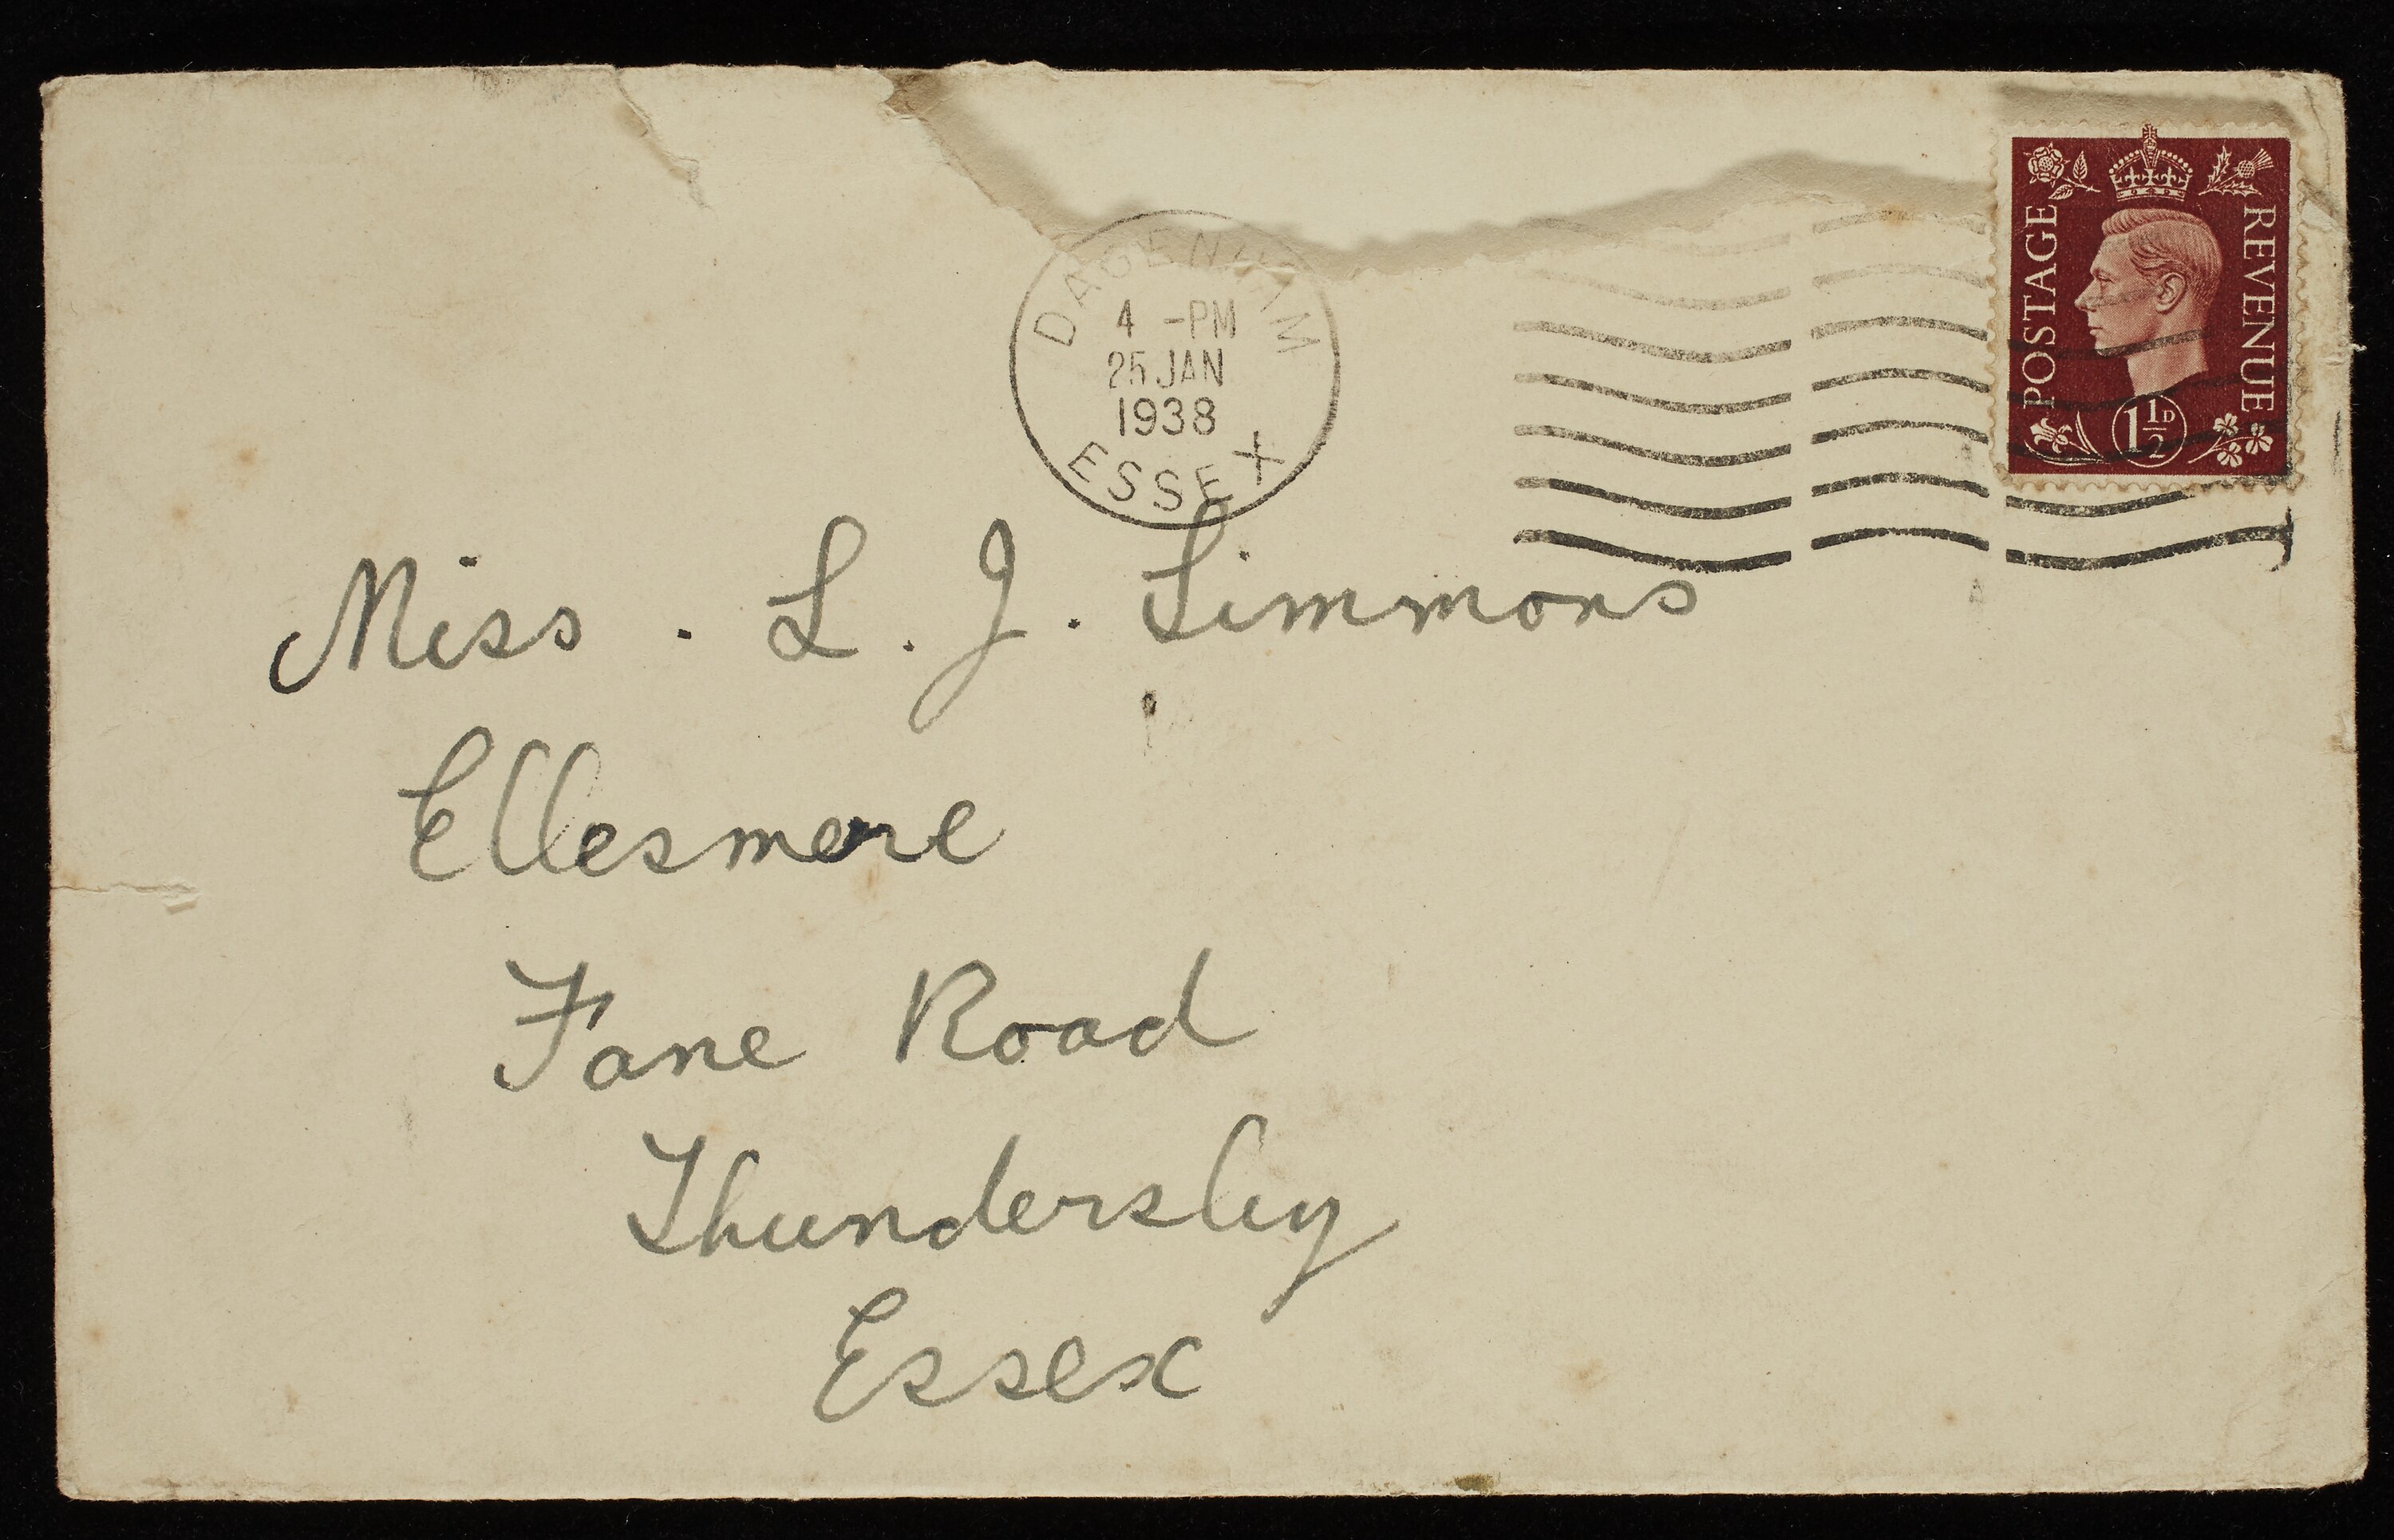 DAGENHAM
4 -PM
25 JAN
1938
ESSEX
POSTAGE
REVENUE
1½D
Miss. L. J. Simmons
Ellesmere
Fane Road
Thundersley
Essex